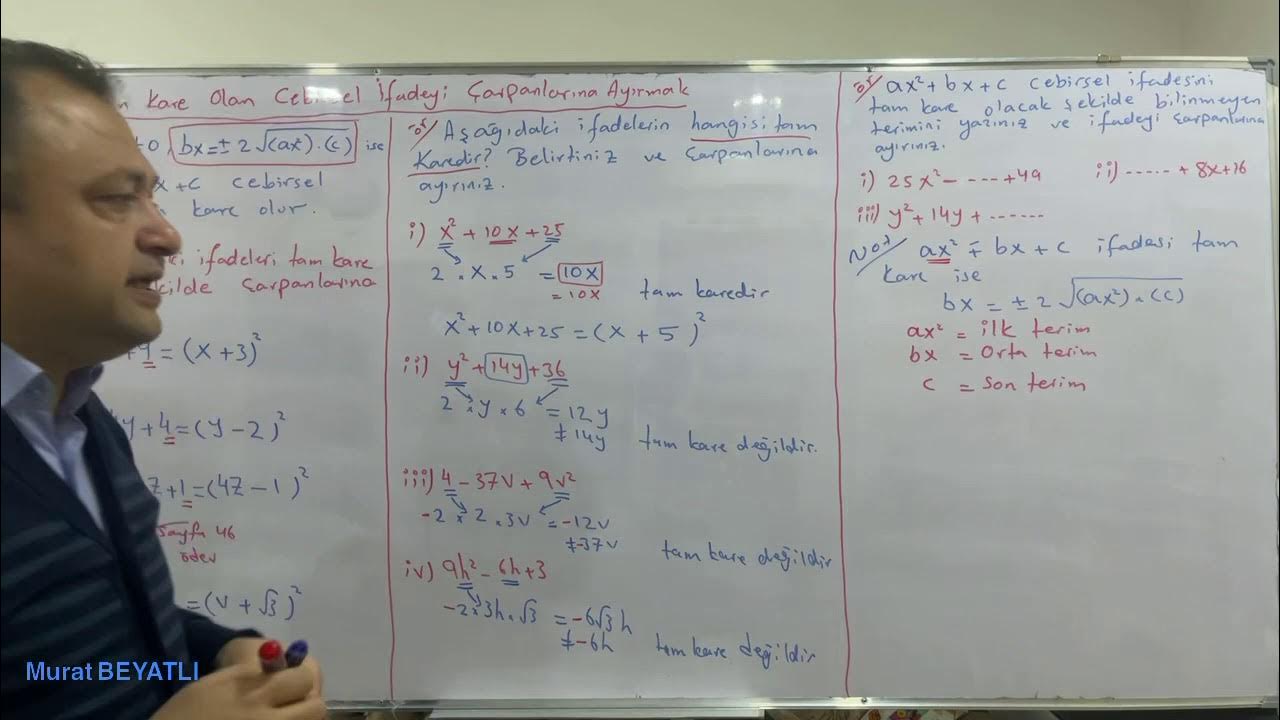 Kare Olan Cebirsel İfadeyi Çarpanlarına Ayırmak
bx=±2√(ax²).(c) ise
x+c cebirsel
kare olur.
ifadeleri tam kare
şekilde çarpanlarına
+9=(x+3)²
4y+4=(y-2)²
z+1=(4z-1)²
sayfa 46
ödev
=(v+√3)²
ör/ Aşağıdaki ifadelerin hangisi tam
Karedir? Belirtiniz ve çarpanlarına
ayırınız.
i) x²+10x+25
2.x.5 = 10x
=10x tam karedir
x²+10x+25=(x+5)²
ii) y²+14y+36
2×y×6 = 12y
≠14y tam kare değildir.
iii) 4-37v+9v²
-2×2.3v = -12v
≠-37v tam kare değildir
iv) 9h²-6h+3
-2×3h.√3 = -6√3 h
≠-6h tam kare değildir
ör/ ax²+bx+c cebirsel ifadesini
tam kare olacak şekilde bilinmeyen
terimini yazınız ve ifadeyi çarpanlarına
ayırınız.
i) 25x²-----+49 ii) ..... + 8x+16
iii) y²+14y+......
Not/ ax²∓bx+c ifadesi tam
kare ise
bx = ±2√(ax²).(c)
ax² = ilk terim
bx = Orta terim
c = son terim
Murat BEYATLI